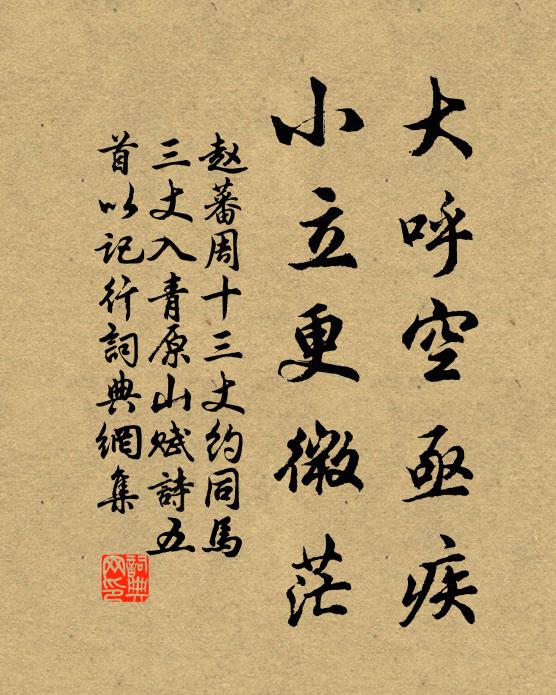 大呼空亟疾
小立更微茫
赵蕃周十三丈约同馬
三丈入青原山赋詩五
首以记行詞典網集
詞典网印